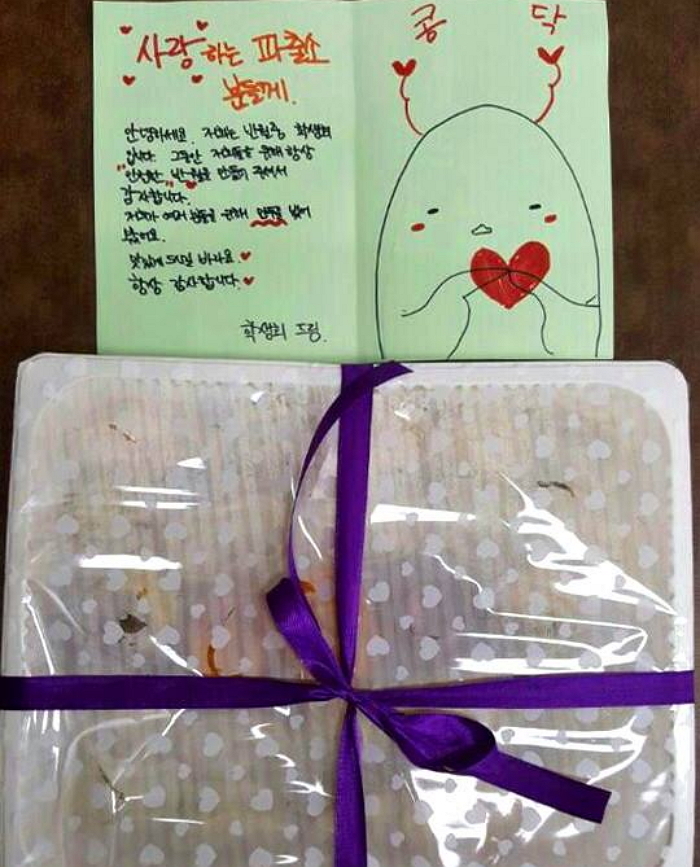 사랑하는 파출소
분들께.
안녕하세요. 저희는 반월중 학생회
입니다. 그동안 저희들을 위해 항상
"안전한 반월"을 만들어 주셔서
감사합니다.
저희가 여러분들을 위해 만두를 빚어
봤어요.
맛있게 드시길 바라요.
항상 감사합니다.
학생회 드림.
콩 닥